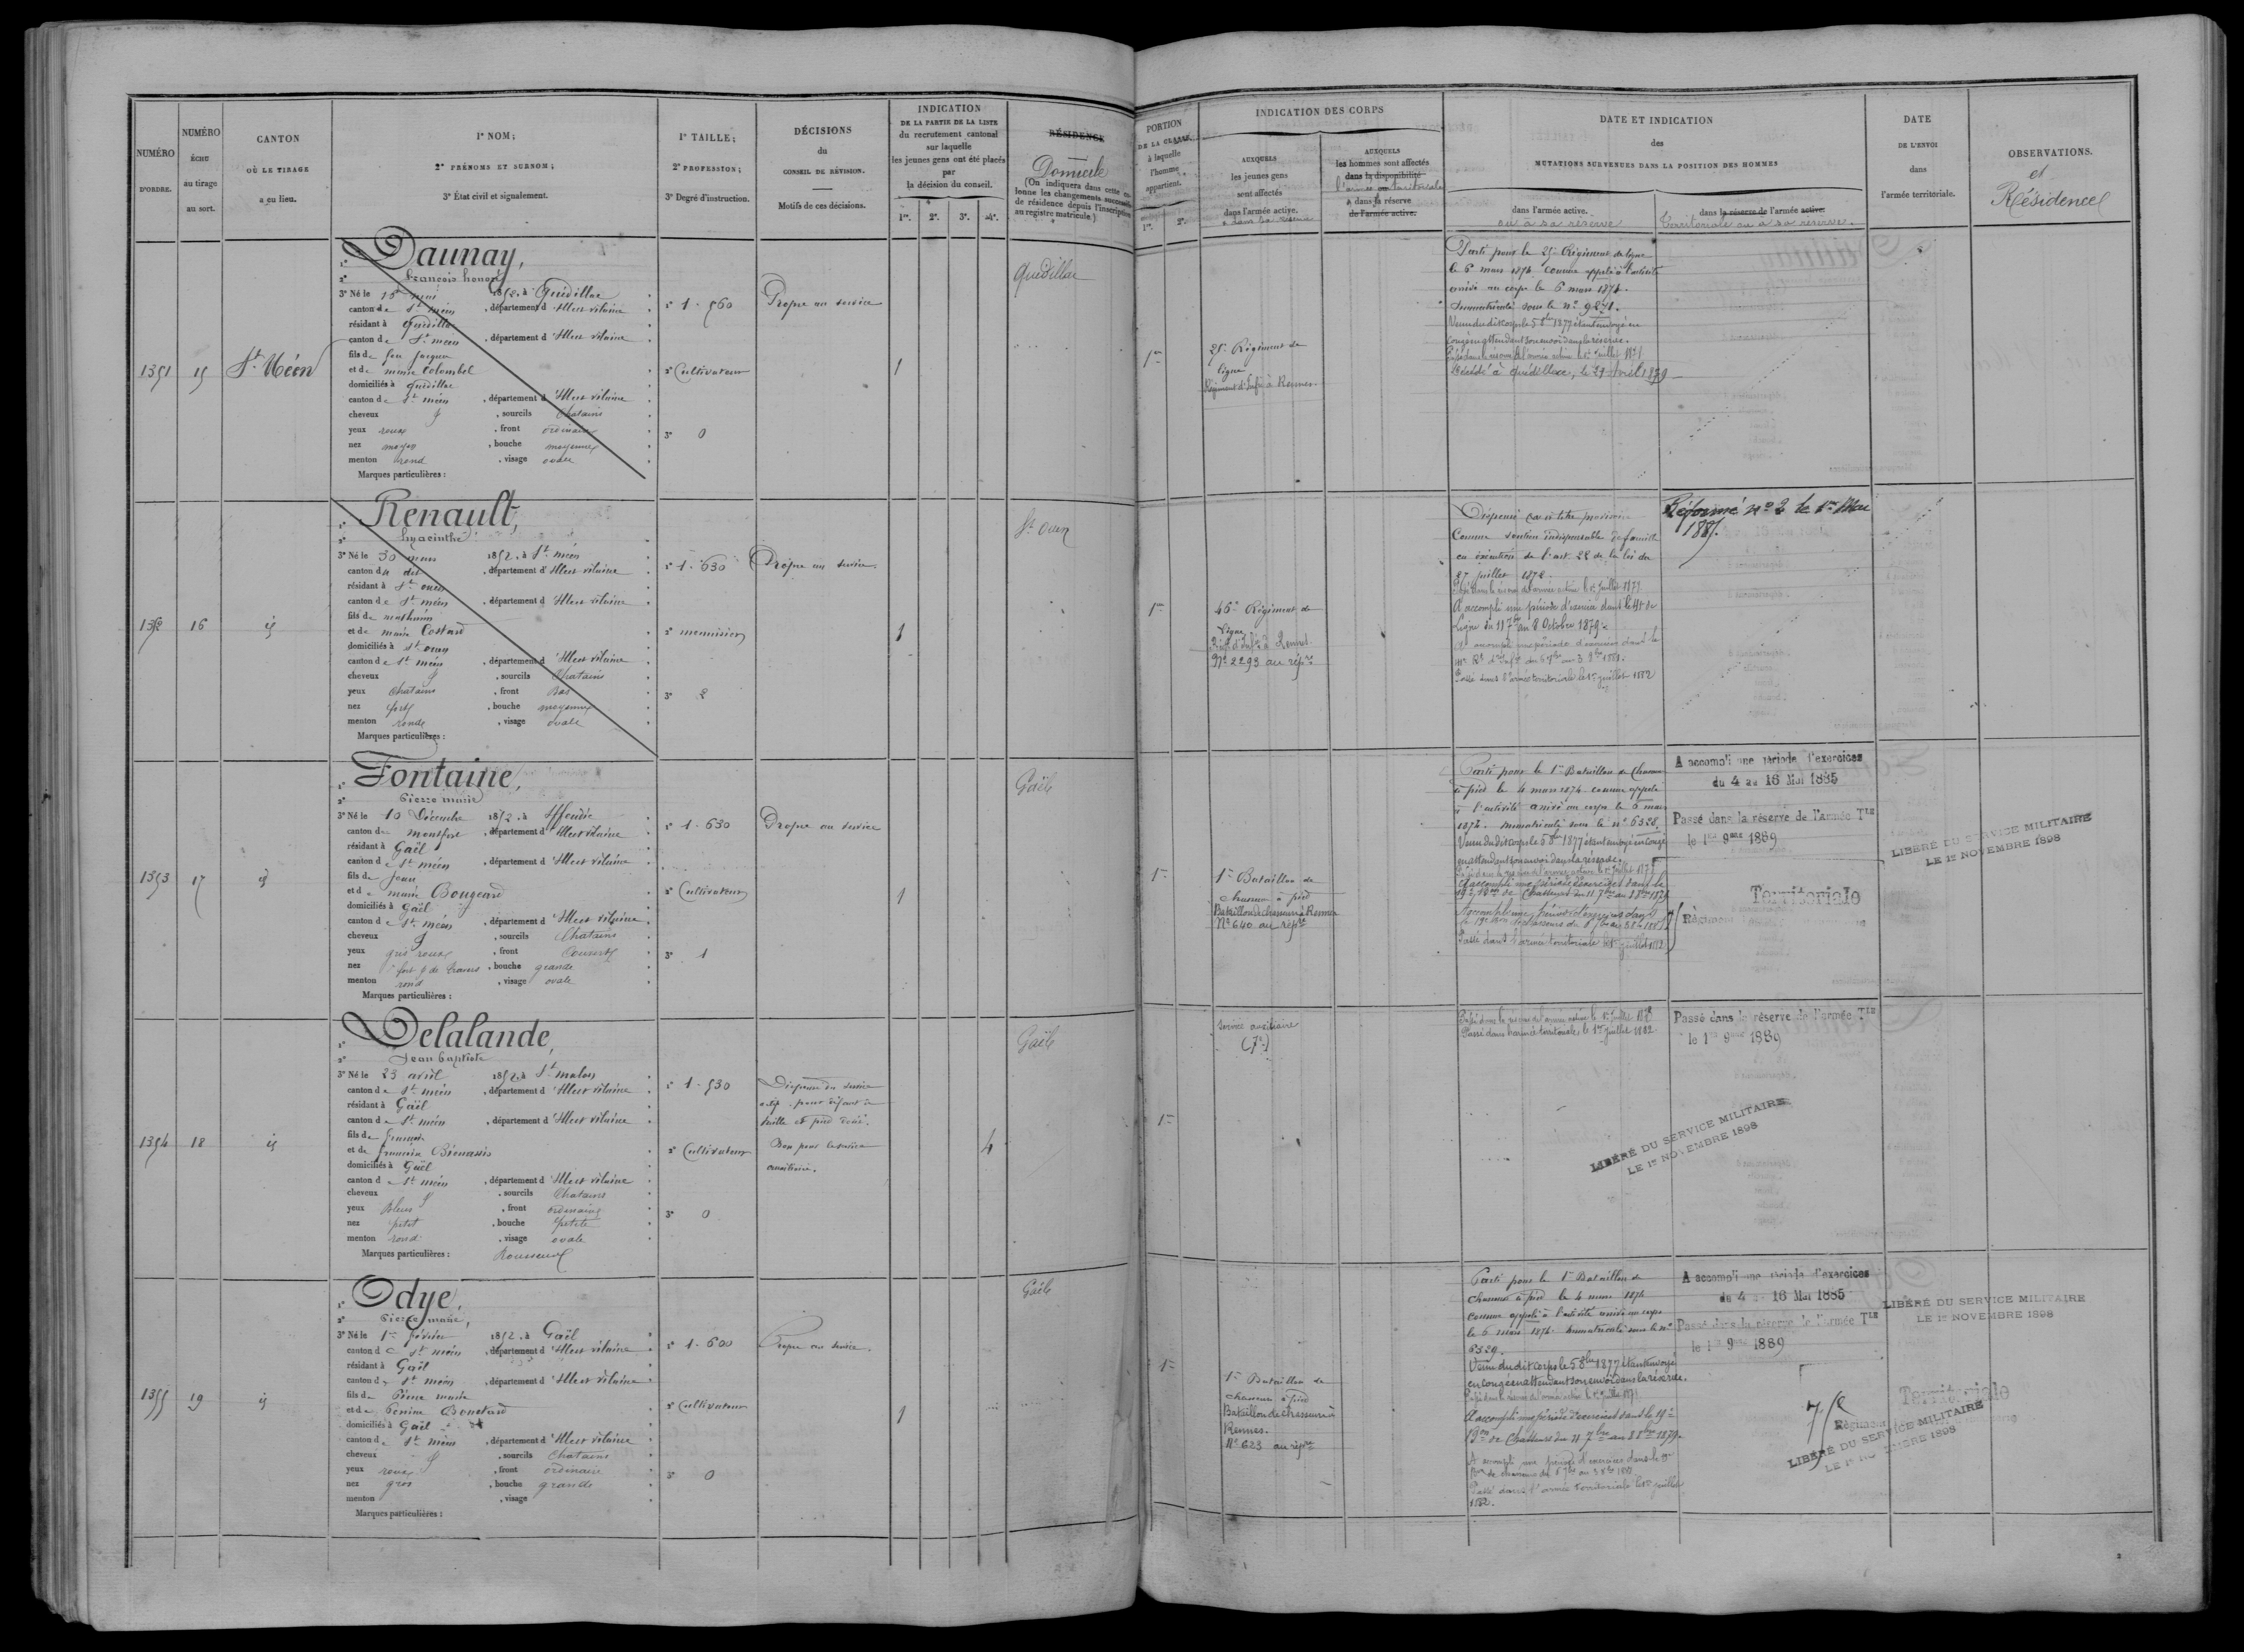 NUMÉRO
D'ORDRE.
NUMÉRO
ÉCHU
au tirage
au sort.
CANTON
OÙ LE TIRAGE
a eu lieu.
1° NOM;
2° PRÉNOMS ET SURNOM;
3° État civil et signalement.
1° TAILLE;
2° PROFESSION;
3° Degré d'instruction.
DÉCISIONS
du
CONSEIL DE RÉVISION.
Motifs de ces décisions.
INDICATION
DE LA PARTIE DE LA LISTE
du recrutement cantonal
sur laquelle
les jeunes gens ont été placés
par
la décision du conseil.
1re. 2e. 3e. 4e.
RÉSIDENCE
Domicile
(On indiquera dans cette co-
lonne les changements successifs
de résidence depuis l'inscription
au registre matricule.)
PORTION
DE LA CLASSE
à laquelle
l'homme
appartient.
1re. 2e.
INDICATION DES CORPS
AUXQUELS
les jeunes gens
sont affectés
dans l'armée active.
AUXQUELS
les hommes sont affectés
dans la disponibilité
l'armée territoriale
dans sa réserve
de l'armée active.
DATE ET INDICATION
des
MUTATIONS SURVENUES DANS LA POSITION DES HOMMES
dans l'armée active.
ou à sa réserve
dans la réserve de l'armée active.
Territoriale ou à sa réserve.
DATE
DE L'ENVOI
dans
l'armée territoriale.
OBSERVATIONS.
et
Résidence
1351
15
St Méen
1° Daunay,
2° François honoré
3° Né le 15 mai 1852, à Quédillac
canton de St méen, département d'Ille et vilaine
résidant à Quédillac
canton de St méen, département d'Ille et vilaine
fils de feu Jacques
et de marie Colombel
domiciliés à Quédillac
canton de St méen, département d'Ille et vilaine
cheveux, sourcils Chatains
yeux roux, front ordinaire
nez moyen, bouche moyenne
menton rond, visage ovale
Marques particulières :
1° 1.560
2° Cultivateur
3° 0
Propre au service
1
Quédillac
1re
25e Régiment de
ligne
Régiment d'Infie à Rennes.
Parti pour le 25e Régiment de ligne
le 6 mars 1874 comme appelé à l'activité
arrivé au corps le 6 mars 1874.
Immatriculé sous le n° 9271.
Venu du dit corps le 5 8bre 1877 étant envoyé en
congé en attendant son envoi dans la réserve.
Décédé à Quédillac, le 29 Avril 1879
1352
16
id
1° Renault,
2° hyacinthe
3° Né le 30 mars 1852, à St méen
canton du dit, département d'Ille et vilaine
résidant à St ouen
canton de St méen, département d'Ille et vilaine
fils de mathurin
et de marie Costard
domiciliés à St ouen
canton de St méen, département d'Ille et vilaine
cheveux, sourcils Chatains
yeux Chatains, front Bas
nez fort, bouche moyenne
menton ronde, visage ovale
Marques particulières :
1° 1.630
2° menuisier
3° 2
Propre au service.
1
St Ouen
1re
46e Régiment de
ligne
N° 2293 au répre
Dispensé à titre provisoire
Comme soutien indispensable de famille
en exécution de l'art 22 de la loi du
27 juillet 1872.
A accompli une période d'exercice dans le 41e de
Ligne du 11 7bre au 8 Octobre 1879.
Passé dans l'armée territoriale le 1er juillet 1882
Réformé n° 2 le 1er Mai
1885.
1353
17
id
1° Fontaine,
2° Pierre marie
3° Né le 10 Décembre 1852, à Iffendic
canton de montfort, département d'Ille et vilaine
résidant à Gaël
canton de St méen, département d'Ille et vilaine
fils de Jean
et de marie Bougeard
domiciliés à Gaël
canton de St méen, département d'Ille et vilaine
cheveux, sourcils Chatains
yeux gris roux, front Couvert
nez fort, bouche grande
menton rond, visage ovale
Marques particulières :
1° 1.630
2° Cultivateur
3° 1
Propre au service
1
Gaël
1re
1er Bataillon de
chasseurs à pied
Bataillon de chasseurs à Rennes
N° 640 au répre
Parti pour le 1er Bataillon de Chasseurs
à pied le 4 mars 1874 comme appelé
à l'activité arrivé au corps le 6 mars
1874. Immatriculé sous le n° 6528.
Venu du dit corps le 5 8bre 1877 étant envoyé en congé
en attendant son envoi dans la réserve.
A accompli une période d'exercices dans le
19e Bon de Chasseurs du 11 7bre au 8 8bre 1879
Passé dans l'armée territoriale le 1er juillet 1882
A accompli une période d'exercices
du 4 au 16 Mai 1885
Passé dans la réserve de l'armée Tle
le 1er 9bre 1889
Territoriale
Régiment
LIBÉRÉ DU SERVICE MILITAIRE
LE 1er NOVEMBRE 1898
1354
18
id
1° Delalande,
2° Jean Baptiste
3° Né le 23 avril 1852, à St malon
canton de St méen, département d'Ille et vilaine
résidant à Gaël
canton de St méen, département d'Ille et vilaine
fils de
et de françoise Bienassis
domiciliés à Gaël
canton de St méen, département d'Ille et vilaine
cheveux, sourcils Chatains
yeux Bleus, front ordinaire
nez petit, bouche petite
menton rond, visage ovale
Marques particulières : Rousseurs
1° 1.530
2° Cultivateur
3° 0
Dispensé du service
actif pour défaut de
taille et pied
Bon pour le service
auxiliaire.
4
Gaël
1re
Service auxiliaire
Passé dans la réserve de l'armée active le 1er juillet 1878
Passé dans l'armée territoriale le 1er juillet 1882.
Passé dans la réserve de l'armée Tle
le 1er 9bre 1889
LIBÉRÉ DU SERVICE MILITAIRE
LE 1er NOVEMBRE 1898
1355
19
id
1° Odye,
2° Pierre marie,
3° Né le 1er février 1852, à Gaël
canton de St méen, département d'Ille et vilaine
résidant à Gaël
canton de St méen, département d'Ille et vilaine
fils de Pierre marie
et de Perrine
domiciliés à Gaël
canton de St méen, département d'Ille et vilaine
cheveux, sourcils Chatains
yeux roux, front ordinaire
nez gros, bouche grande
menton, visage
Marques particulières :
1° 1.600
2° Cultivateur
3° 0
Propre au service.
1
Gaël
1re
1er Bataillon de
chasseurs à pied
Bataillon de chasseurs à
Rennes.
N° 623 au répre
Parti pour le 1er Bataillon de
chasseurs à pied le 4 mars 1874
comme appelé à l'activité arrivé au corps
le 6 mars 1874. Immatriculé sous le n°
6529.
Venu du dit corps le 5 8bre 1877 étant envoyé
en congé en attendant son envoi dans la réserve.
A accompli une période d'exercices dans le 19e
Bon de Chasseurs du 11 7bre au 8 8bre 1879.
Passé dans l'armée territoriale le 1er juillet
1882.
A accompli une période d'exercices
du 4 au 16 Mai 1885
Passé dans la réserve de l'armée Tle
le 1er 9bre 1889
Territoriale
Régiment
LIBÉRÉ DU SERVICE MILITAIRE
LE 1er NOVEMBRE 1898
LIBÉRÉ DU SERVICE MILITAIRE
LE 1er NOVEMBRE 1898